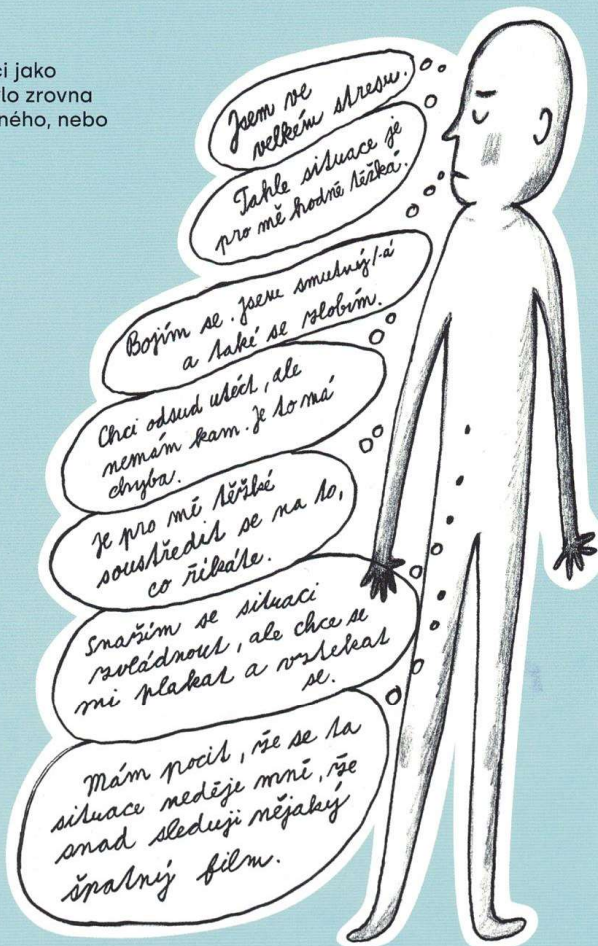 ci jako
lo zrovna
ného, nebo
Jsem ve
velkém stresu.
Tahle situace je
pro mě hodně těžká.
Bojím se. Jsem smutný/á
a také se zlobím.
Chci odsud utéct, ale
nemám kam. Je to má
chyba.
Je pro mě těžké
soustředit se na to,
co říkáte.
Snažím se situaci
zvládnout, ale chce se
mi plakat a vztekat
se.
Mám pocit, že se ta
situace neděje mně, že
snad sleduji nějaký
špatný film.